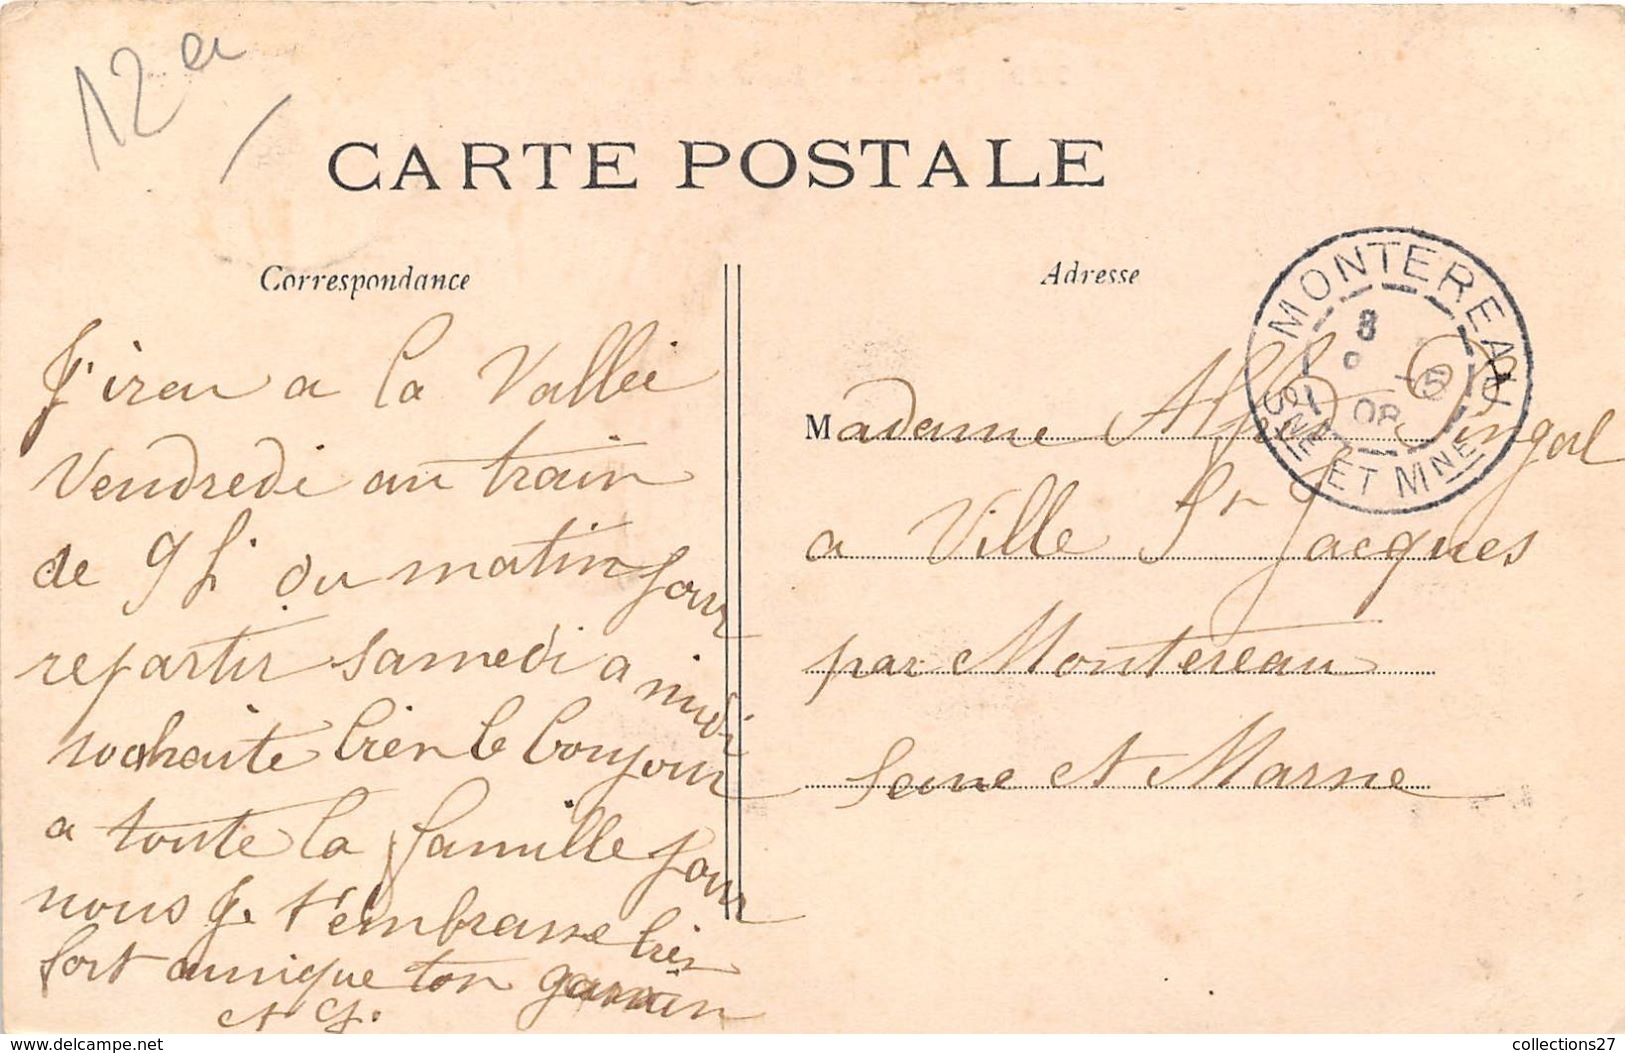 12 a
CARTE POSTALE
Correspondance
J'irai a la Vallée
Vendredi au train
de 9 h du matin pour
repartir samedi a midi
souhaite bien le bonjour
a toute la famille pour
nous Je t'embrasse bien
fort ainsique ton
Adresse
MONTEREAU
8
5
08
SNE ET MNE
Madame
a Ville St Jacques
par Montereau
Seine et Marne
https://www.delcampe.net
collections27